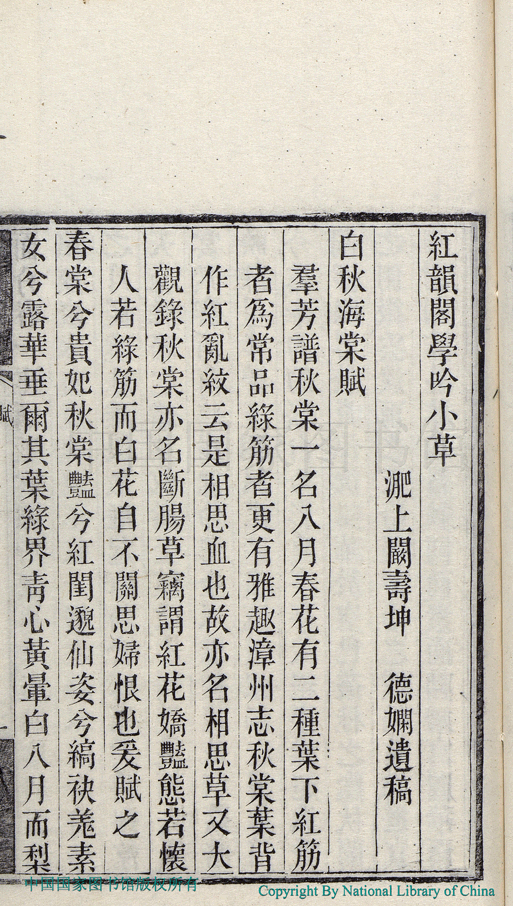 紅韻閣學吟小草
淝上闞壽坤　德嫻遺稿
白秋海棠賦
羣芳譜秋棠一名八月春花有二種葉下紅筋
者爲常品綠筋者更有雅趣漳州志秋棠葉背
作紅亂紋云是相思血也故亦名相思草又大
觀錄秋棠亦名斷腸草竊謂紅花嬌豔態若懷
人若綠筋而白花自不關思婦恨也爰賦之
春棠兮貴妃秋棠豔兮紅閨邈仙姿兮縞袂羗素
女兮露華垂爾其葉綠界靑心黃暈白八月而梨
賦
中国国家图书馆版权所有
Copyright By National Library of China